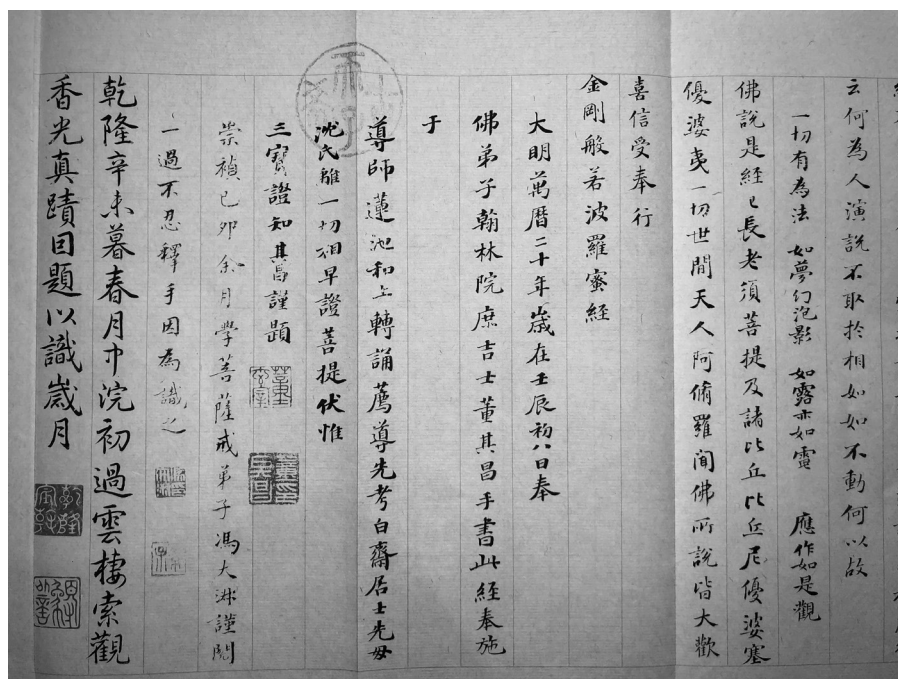 云何為人演說不取於相如如不動何以故
一切有為法 如夢幻泡影 如露亦如電 應作如是觀
佛說是經已長老須菩提及諸比丘比丘尼優婆塞
優婆夷一切世間天人阿脩羅聞佛所說皆大歡
喜信受奉行
金剛般若波羅蜜經
大明萬曆二十年歲在壬辰初八日奉
佛弟子翰林院庶吉士董其昌手書此經奉施
于
導師蓮池和上轉誦薦導先考白齋居士先母
沈氏離一切相早證菩提伏惟
三寶證知其昌謹題
崇禎己卯余月學菩薩戒弟子馮大 謹閱
一過不忍釋手因為識之
乾隆辛未暮春月中浣初過雲棲索觀
香光真蹟因題以識歲月